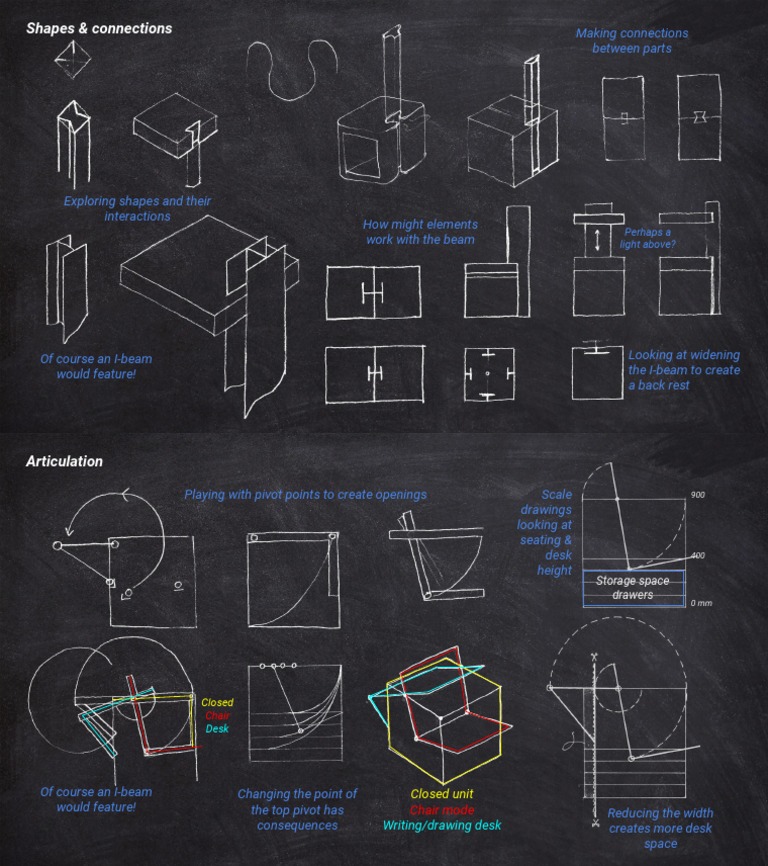 Shapes & connections
Making connections
between parts
Exploring shapes and their
interactions
How might elements
work with the beam
Perhaps a
light above?
Of course an I-beam
would feature!
Looking at widening
the I-beam to create
a back rest
Articulation
Playing with pivot points to create openings
Scale
drawings
looking at
seating &
desk
height
900
400
Storage space
drawers
0 mm
Closed
Chair
Desk
Of course an I-beam
would feature!
Changing the point of
the top pivot has
consequences
Closed unit
Chair mode
Writing/drawing desk
Reducing the width
creates more desk
space